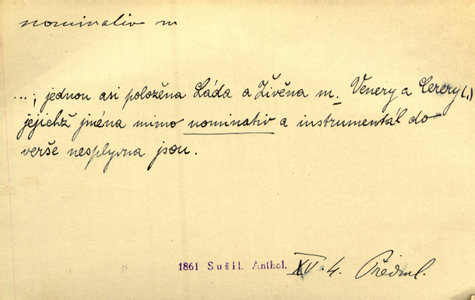 nominativ m
...; jednou asi položěna Láda a Živěna m. Venery a Cerery (.)
jejichž jména mimo nominativ a instrumentál do-
verše nesplyvna jsou.
1861 Sušil. Anthol. XV. 4. Předml.